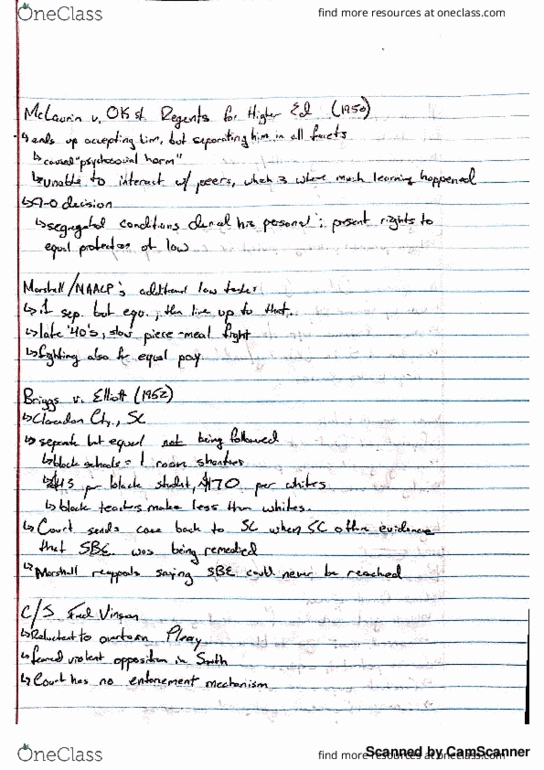 OneClass
find more resources at oneclass.com
McLaurin v. OK st. Regents for Higher Ed (1950)
↳ends up accepting him, but separating him in all facets
↳caused "psychosocial harm"
↳unable to interact w/ peers, which is where much learning happened
↳9-0 decision
↳segregated conditions denied his personal & present rights to
equal protection of law
Marshall/NAACP's additional law
↳if sep. but equ., then live up to that..
↳late '40's, slow piece-meal fight
↳fighting also for equal pay
Briggs v. Elliott (1952)
↳Clarendon Cty., SC
↳separate but equal not being followed
↳black schools = 1 room shanties
↳$43 per black student, $170 per whites
↳black teachers make less than whites.
↳Court sends case back to SC when SC offers evidence
that SBE was being remedied
↳Marshall reappeals saying SBE could never be reached
C/J Fred Vinson
↳Reluctant to overturn Plessy
↳feared violent opposition in South
↳Court has no enforcement mechanism
OneClass
find more resources at oneclass.com
Scanned by CamScanner